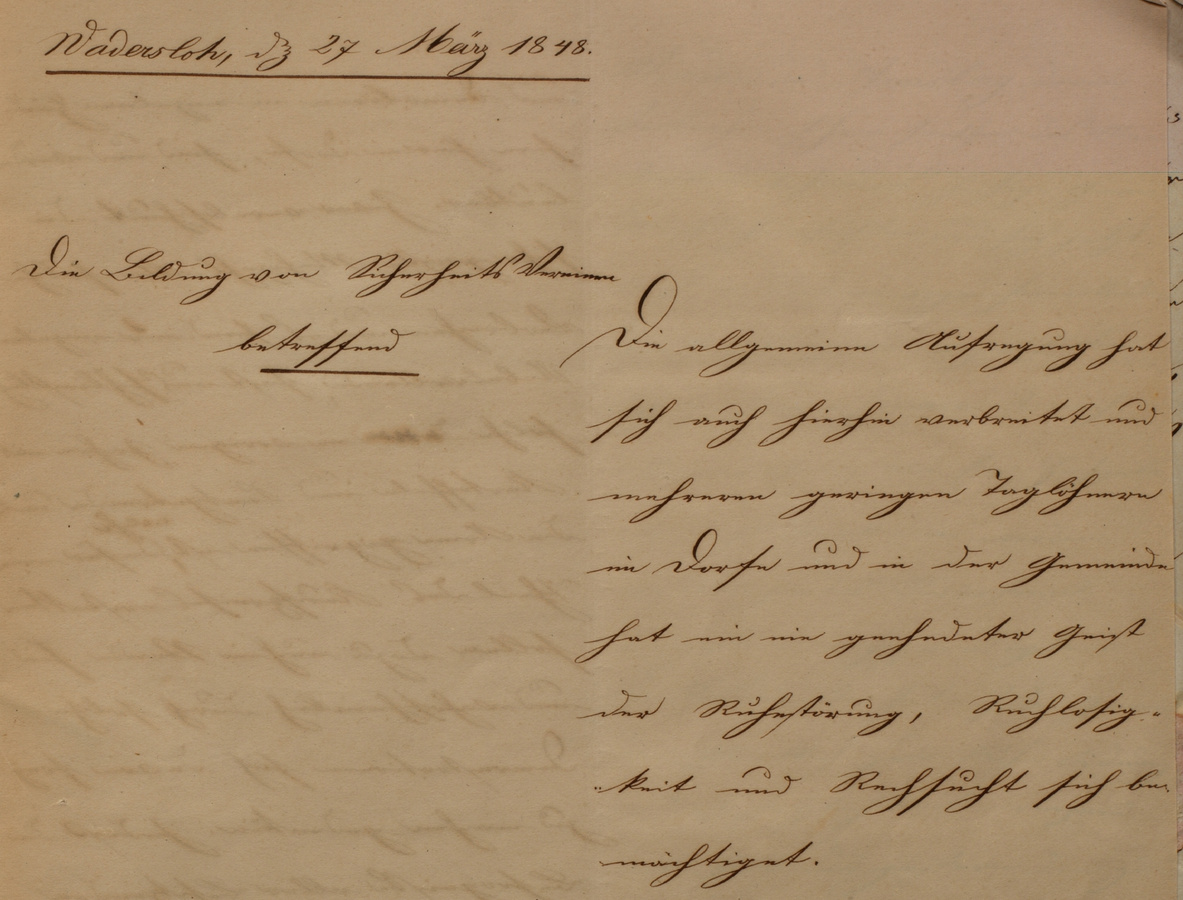 Wadersloh, dz 27 März 1848.
Die Bildung von Sicherheits Vereinen
betreffend
Die allgemeine Aufregung hat
sich auch hierhin verbreitet und
mehreren geringen Taglöhnern
im Dorfe und in der Gemeinde
hat ein nie geahndeter Geist
der Ruhestörung, Ruchlosig-
keit und Rachsucht sich be-
mächtiget.